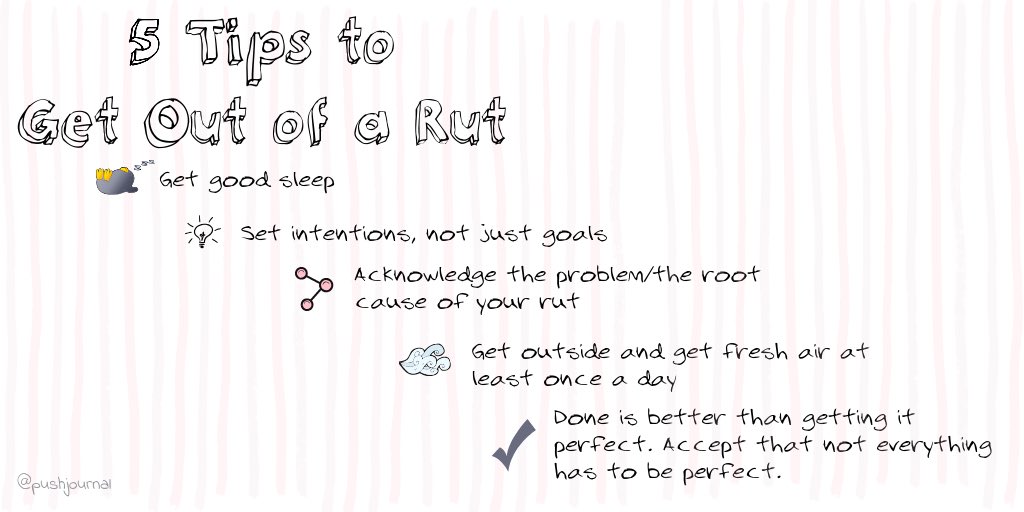 5 Tips to
Get Out of a Rut
Get good sleep
Set intentions, not just goals
Acknowledge the problem/the root
cause of your rut
Get outside and get fresh air at
least once a day
Done is better than getting it
perfect. Accept that not everything
has to be perfect.
@pushjournal